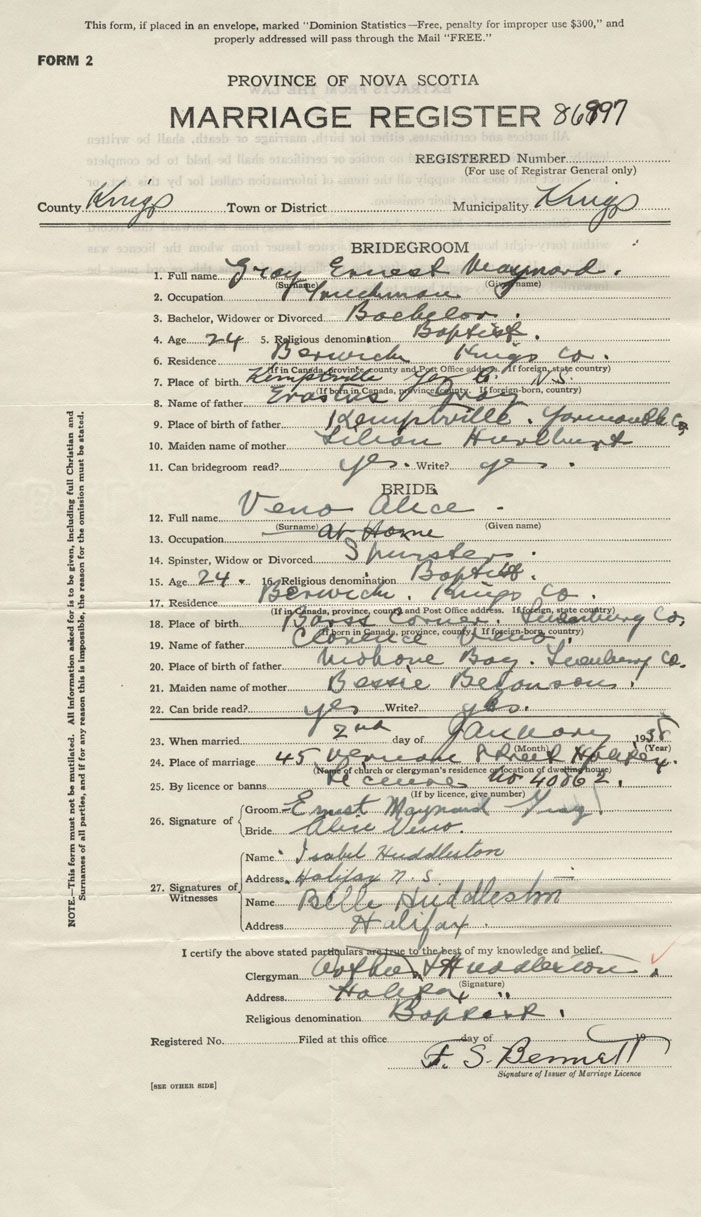 This form, if placed in an envelope, marked "Dominion Statistics—Free, penalty for improper use $300," and
properly addressed will pass through the Mail "FREE."
FORM 2
PROVINCE OF NOVA SCOTIA
MARRIAGE REGISTER 86897
REGISTERED Number
(For use of Registrar General only)
County Kings Town or District Municipality Kings
BRIDEGROOM
1. Full name Gray Ernest Maynard.
(Surname) (Given name)
2. Occupation Truckman
3. Bachelor, Widower or Divorced Bachelor.
4. Age 24 5. Religious denomination Baptist.
6. Residence Berwick Kings Co.
(If in Canada, province, county and Post Office address. If foreign, state country)
7. Place of birth Kemptville N S
(If born in Canada, province, county. If foreign-born, country)
8. Name of father Erastus Gray
9. Place of birth of father Kemptville. Yarmouth Co,
10. Maiden name of mother Lilian Hurlburt
11. Can bridegroom read? yes. Write? yes.
BRIDE
12. Full name Veno Alice.
(Surname) (Given name)
13. Occupation at Home
14. Spinster, Widow or Divorced Spinster.
15. Age 24. 16. Religious denomination Baptist.
17. Residence Berwick. Kings Co.
(If in Canada, province, county and Post Office address. If foreign, state country)
18. Place of birth Barss Corner. Lunenburg Co,
(If born in Canada, province, county. If foreign-born, country)
19. Name of father Clarence Veno.
20. Place of birth of father Mahone Bay. Lunenburg Co.
21. Maiden name of mother Bessie
22. Can bride read? yes Write? yes.
23. When married 2nd day of January 1938
(Month) (Year)
24. Place of marriage 45 Vernon Street Halifax.
(Name of church or clergyman's residence or location of dwelling house)
25. By licence or banns licence No 40862.
(If by licence, give number)
26. Signature of Groom Ernest Maynard Gray
Bride Alice Veno.
27. Signatures of Witnesses
Name Isabel Huddleston
Address Halifax N. S.
Name Belle Huddleston
Address Halifax.
I certify the above stated particulars are true to the best of my knowledge and belief.
Clergyman Huddleston.
(Signature)
Address Halifax "
Religious denomination Baptist.
Registered No. Filed at this office day of 19
F. S. Bennett
Signature of Issuer of Marriage Licence
[SEE OTHER SIDE]
NOTE.—This form must not be mutilated. All information asked for is to be given, including full Christian and
Surnames of all parties, and if for any reason this is impossible, the reason for the omission must be stated.